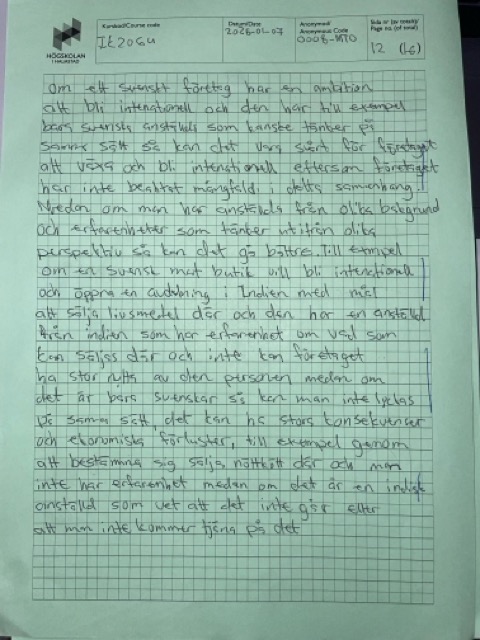 HÖGSKOLAN
I HALMSTAD
Kurskod/Course code
IE2064
Datum/Date
2026-01-07
Anonymkod/
Anonymous Code
0008-MTO
Sida nr (av totalt)/
Page no. (of total)
12 (16)
Om ett svenskt företag har en ambition
att bli intenationell och den har till exempel
bara svenska anställda som kanske tänker på
samma sätt så kan det vara svårt för företaget
att växa och bli intenationell eftersom företaget
har inte beaktat mångfald i detta sammanhang.
Medan om man har anställda från olika bakgrund
och erfarenheter som tänker utifrån olika
perspektiv så kan det gå bättre. Till exmpel
om en svensk mat butik vill bli intenctionell
och öppna en avdelning i Indien med mål
att sälja livsmedel där och den har en anställd
från indien som har erfarenhet om vad som
kan säljas där och inte kan företaget
ha stor nytta av den personen medan om
det är bara svenskar så kan man inte lyckas
på samma sätt, det kan ha stora konsekvenser
och ekonomiska förluster, till exempel genom
att bestämma sig sälja nötkött där och man
inte har erfarenhet medan om det är en indisk
anställd som vet att det inte går eller
att man inte kommer tjäna på det